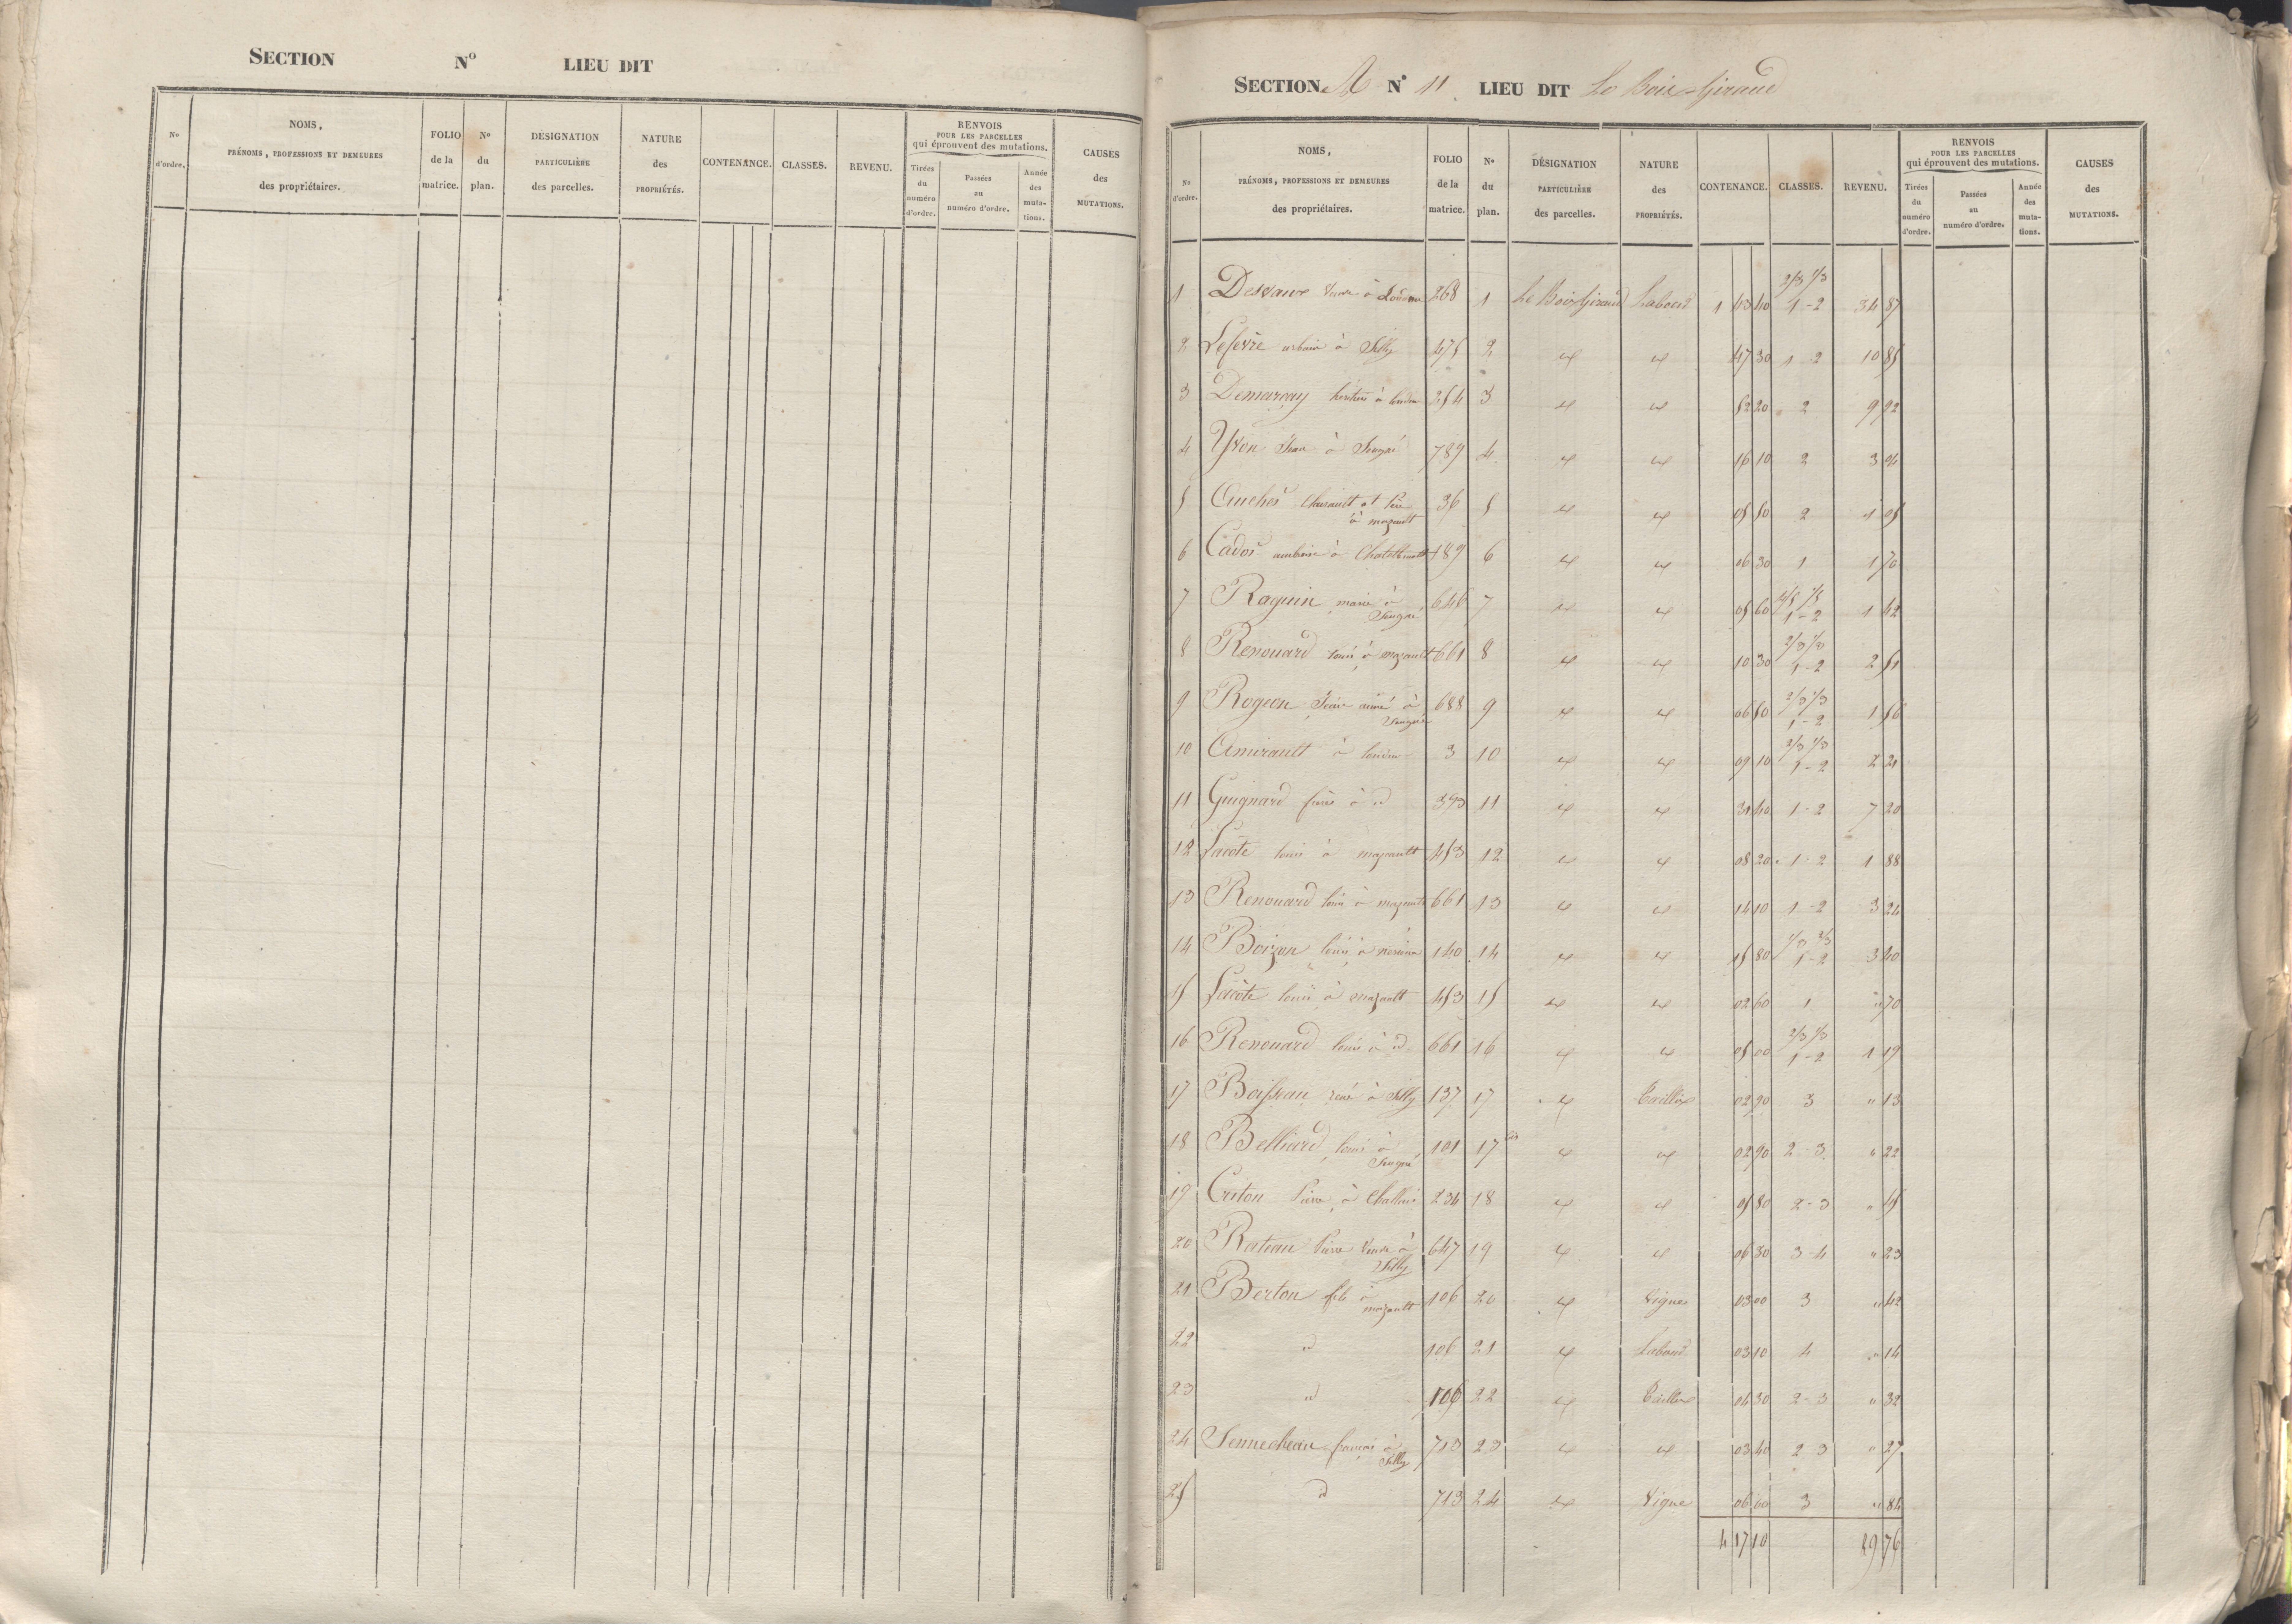 SECTION N° LIEU DIT
N° d'ordre.
NOMS,
PRÉNOMS, PROFESSIONS ET DEMEURES
des propriétaires.
FOLIO de la matrice.
N° du plan.
DÉSIGNATION PARTICULIÈRE des parcelles.
NATURE des PROPRIÉTÉS.
CONTENANCE.
CLASSES.
REVENU.
RENVOIS
POUR LES PARCELLES
qui éprouvent des mutations.
Tirées du numéro d'ordre.
Passées au numéro d'ordre.
Année des mutations.
CAUSES des MUTATIONS.
SECTION A N° 11 LIEU DIT Le Bois Giraud
N° d'ordre.
NOMS,
PRÉNOMS, PROFESSIONS ET DEMEURES
des propriétaires.
FOLIO de la matrice.
N° du plan.
DÉSIGNATION PARTICULIÈRE des parcelles.
NATURE des PROPRIÉTÉS.
CONTENANCE.
CLASSES.
REVENU.
RENVOIS
POUR LES PARCELLES
qui éprouvent des mutations.
Tirées du numéro d'ordre.
Passées au numéro d'ordre.
Année des mutations.
CAUSES des MUTATIONS.
1 Desvaux Veuve à Loudun 268 1 Le Bois Giraud Labour 1 43 40 2/3 1/3 1-2 34 87
2 Lefevre urbain à Silly 475 2 " " 47 30 1-2 10 85
3 Demarçay héritiers à loudun 254 3 " " 52 20 2 9 92
4 Yvon Jean à 789 4 " " 16 10 2 3 06
5 Auchés et Père à mazault 36 5 " " 05 50 2 1 05
6 Cados ambroise à 189 6 " " 06 30 1 1 70
7 Raguin marie à 646 7 " " 05 60 4/5 1/5 1-2 1 42
8 Renouard louis à mazault 661 8 " " 10 30 2/3 1/3 1-2 2 51
9 Rogeon ainé à 688 9 " " 06 50 2/3 1/3 1-2 1 56
10 Amirault à loudun 3 10 " " 09 10 2/3 1/3 1-2 2 21
11 Guignard à id 393 11 " " 31 40 1-2 7 20
12 Lacote louis à mazault 453 12 " " 08 20 1-2 1 88
13 Renouard louis à mazault 661 13 " " 14 10 1-2 3 24
14 Boizon louis à 140 14 " " 15 80 1/3 2/3 1-2 3 40
15 Lacote louis à mazault 453 15 " " 02 60 1 " 70
16 Renouard louis à id 661 16 " " 05 00 2/3 1/3 1-2 1 19
17 Boisseau rené à Silly 137 17 " Taillis 02 90 3 " 13
18 Belliard louis à 101 17 bis " " 02 90 2-3 " 22
19 Criton Pierre à 234 18 " " 05 80 2-3 " 45
20 Rateau Pierre Veuve à Silly 647 19 " " 06 30 3-4 " 23
21 Berton fils à mazault 106 20 " Vigne 03 00 3 " 42
22 id 106 21 " Labour 03 10 4 " 14
23 id 106 22 " Taillis 04 30 2-3 " 32
24 Sennecheau françois à Silly 713 23 " " 03 40 2 3 " 27
25 id 713 24 " Vigne 06 60 3 " 84
4 17 10 89 76